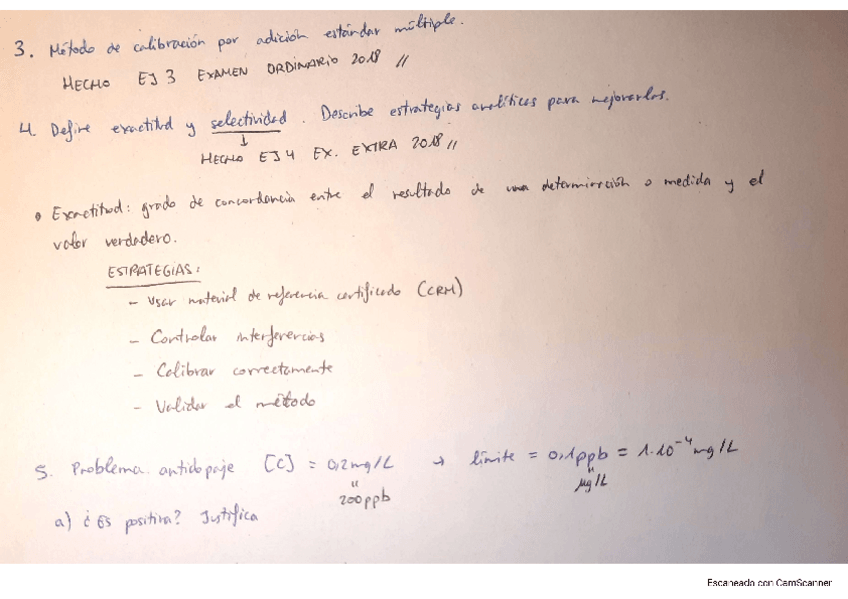 3. Método de calibración por adición estándar múltiple.
HECHO EJ 3 EXAMEN ORDINARIO 2018 //
4. Define exactitud y selectividad. Describe estrategias analíticas para mejorarlas.
↓
HECHO EJ 4 EX. EXTRA 2018 //
• Exactitud: grado de concordancia entre el resultado de una determinación o medida y el
valor verdadero.
ESTRATEGIAS:
- Usar material de referencia certificado (CRM)
- Controlar interferencias
- Calibrar correctamente
- Validar el método
5. Problema antidopaje [C] = 0,2mg/L → límite = 0,1ppb = 1·10⁻⁴ mg/L
" "
200ppb µg/L
a) ¿Es positiva? Justifica
Escaneado con CamScanner